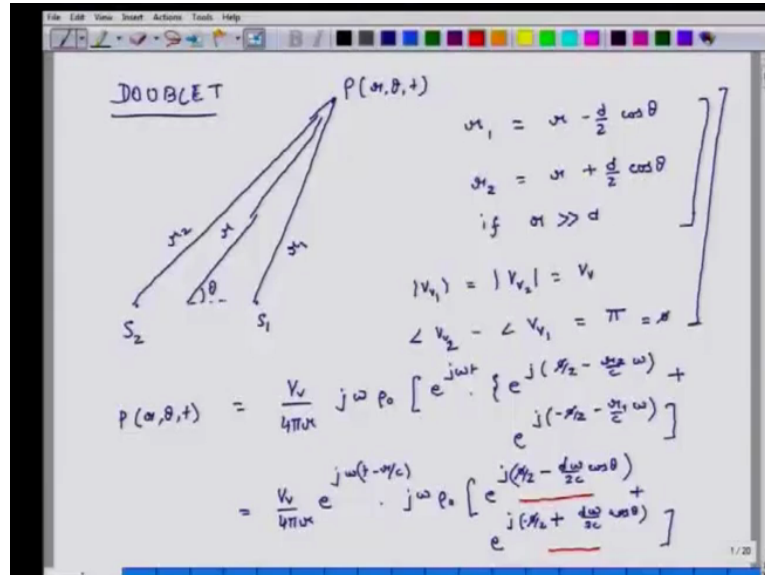 File Edit View Insert Actions Tools Help
DOUBLET
P(r,θ,t)
r₁ = r - d/2 cosθ
r₂ = r + d/2 cosθ
if r >> d
r₂ r r₁
θ
S₂ S₁
|V_v₁) = |V_v₂| = V_v
∠ V_v₂ - ∠ V_v₁ = π = ø
P(r,θ,t) = V_v/4πr jωρ₀ [e^{jωt} · {e^{j(ø/2 - r₂/c ω)} +
e^{j(-ø/2 - r₁/c ω)}]
= V_v/4πr e^{jω(t-r/c)} · jωρ₀ [e^{j(ø/2 - dω/2c cosθ)} +
e^{j(-ø/2 + dω/2c cosθ)}]
1/20